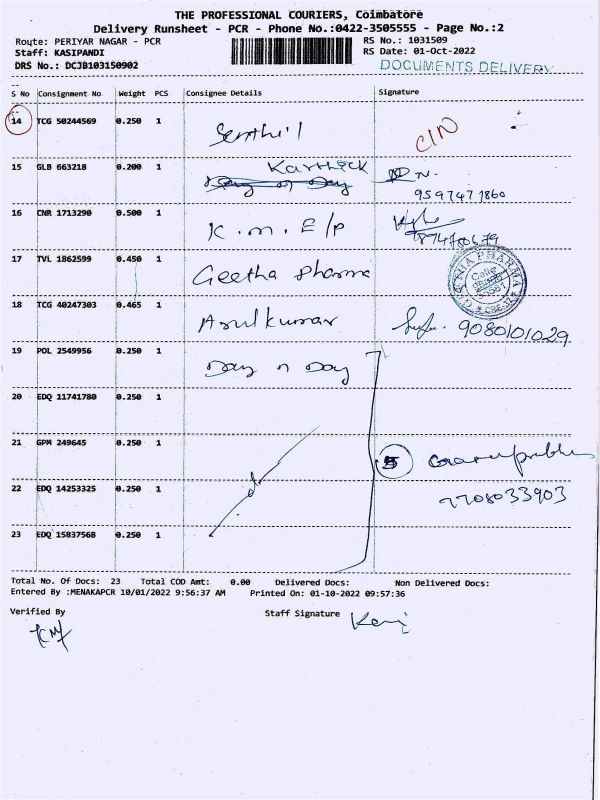 THE PROFESSIONAL COURIERS, Coimbatore
Delivery Runsheet - PCR - Phone No.:0422-3505555 - Page No.:2
Route: PERIYAR NAGAR - PCR
RS No.: 1031509
Staff: KASIPANDI
RS Date: 01-Oct-2022
DRS No.: DCJB103150902
DOCUMENTS DELIVERY
S No Consignment No Weight PCS Consignee Details Signature
14 TCG 50244569 0.250 1 Senthil
15 GLB 663218 0.200 1 Karthick
Day n Day
9597471860
16 CNR 1713290 0.500 1 K.M.E/P
17 TVL 1862599 0.450 1 Geetha Pharma
18 TCG 40247303 0.465 1 Arulkumar 9080101029
19 POL 2549956 0.250 1 Day n Day
20 EDQ 11741780 0.250 1
21 GPM 249645 0.250 1 5
22 EDQ 14253325 0.250 1 7708033903
23 EDQ 15837568 0.250 1
Total No. Of Docs: 23 Total COD Amt: 0.00 Delivered Docs: Non Delivered Docs:
Entered By :MENAKAPCR 10/01/2022 9:56:37 AM Printed On: 01-10-2022 09:57:36
Verified By Staff Signature